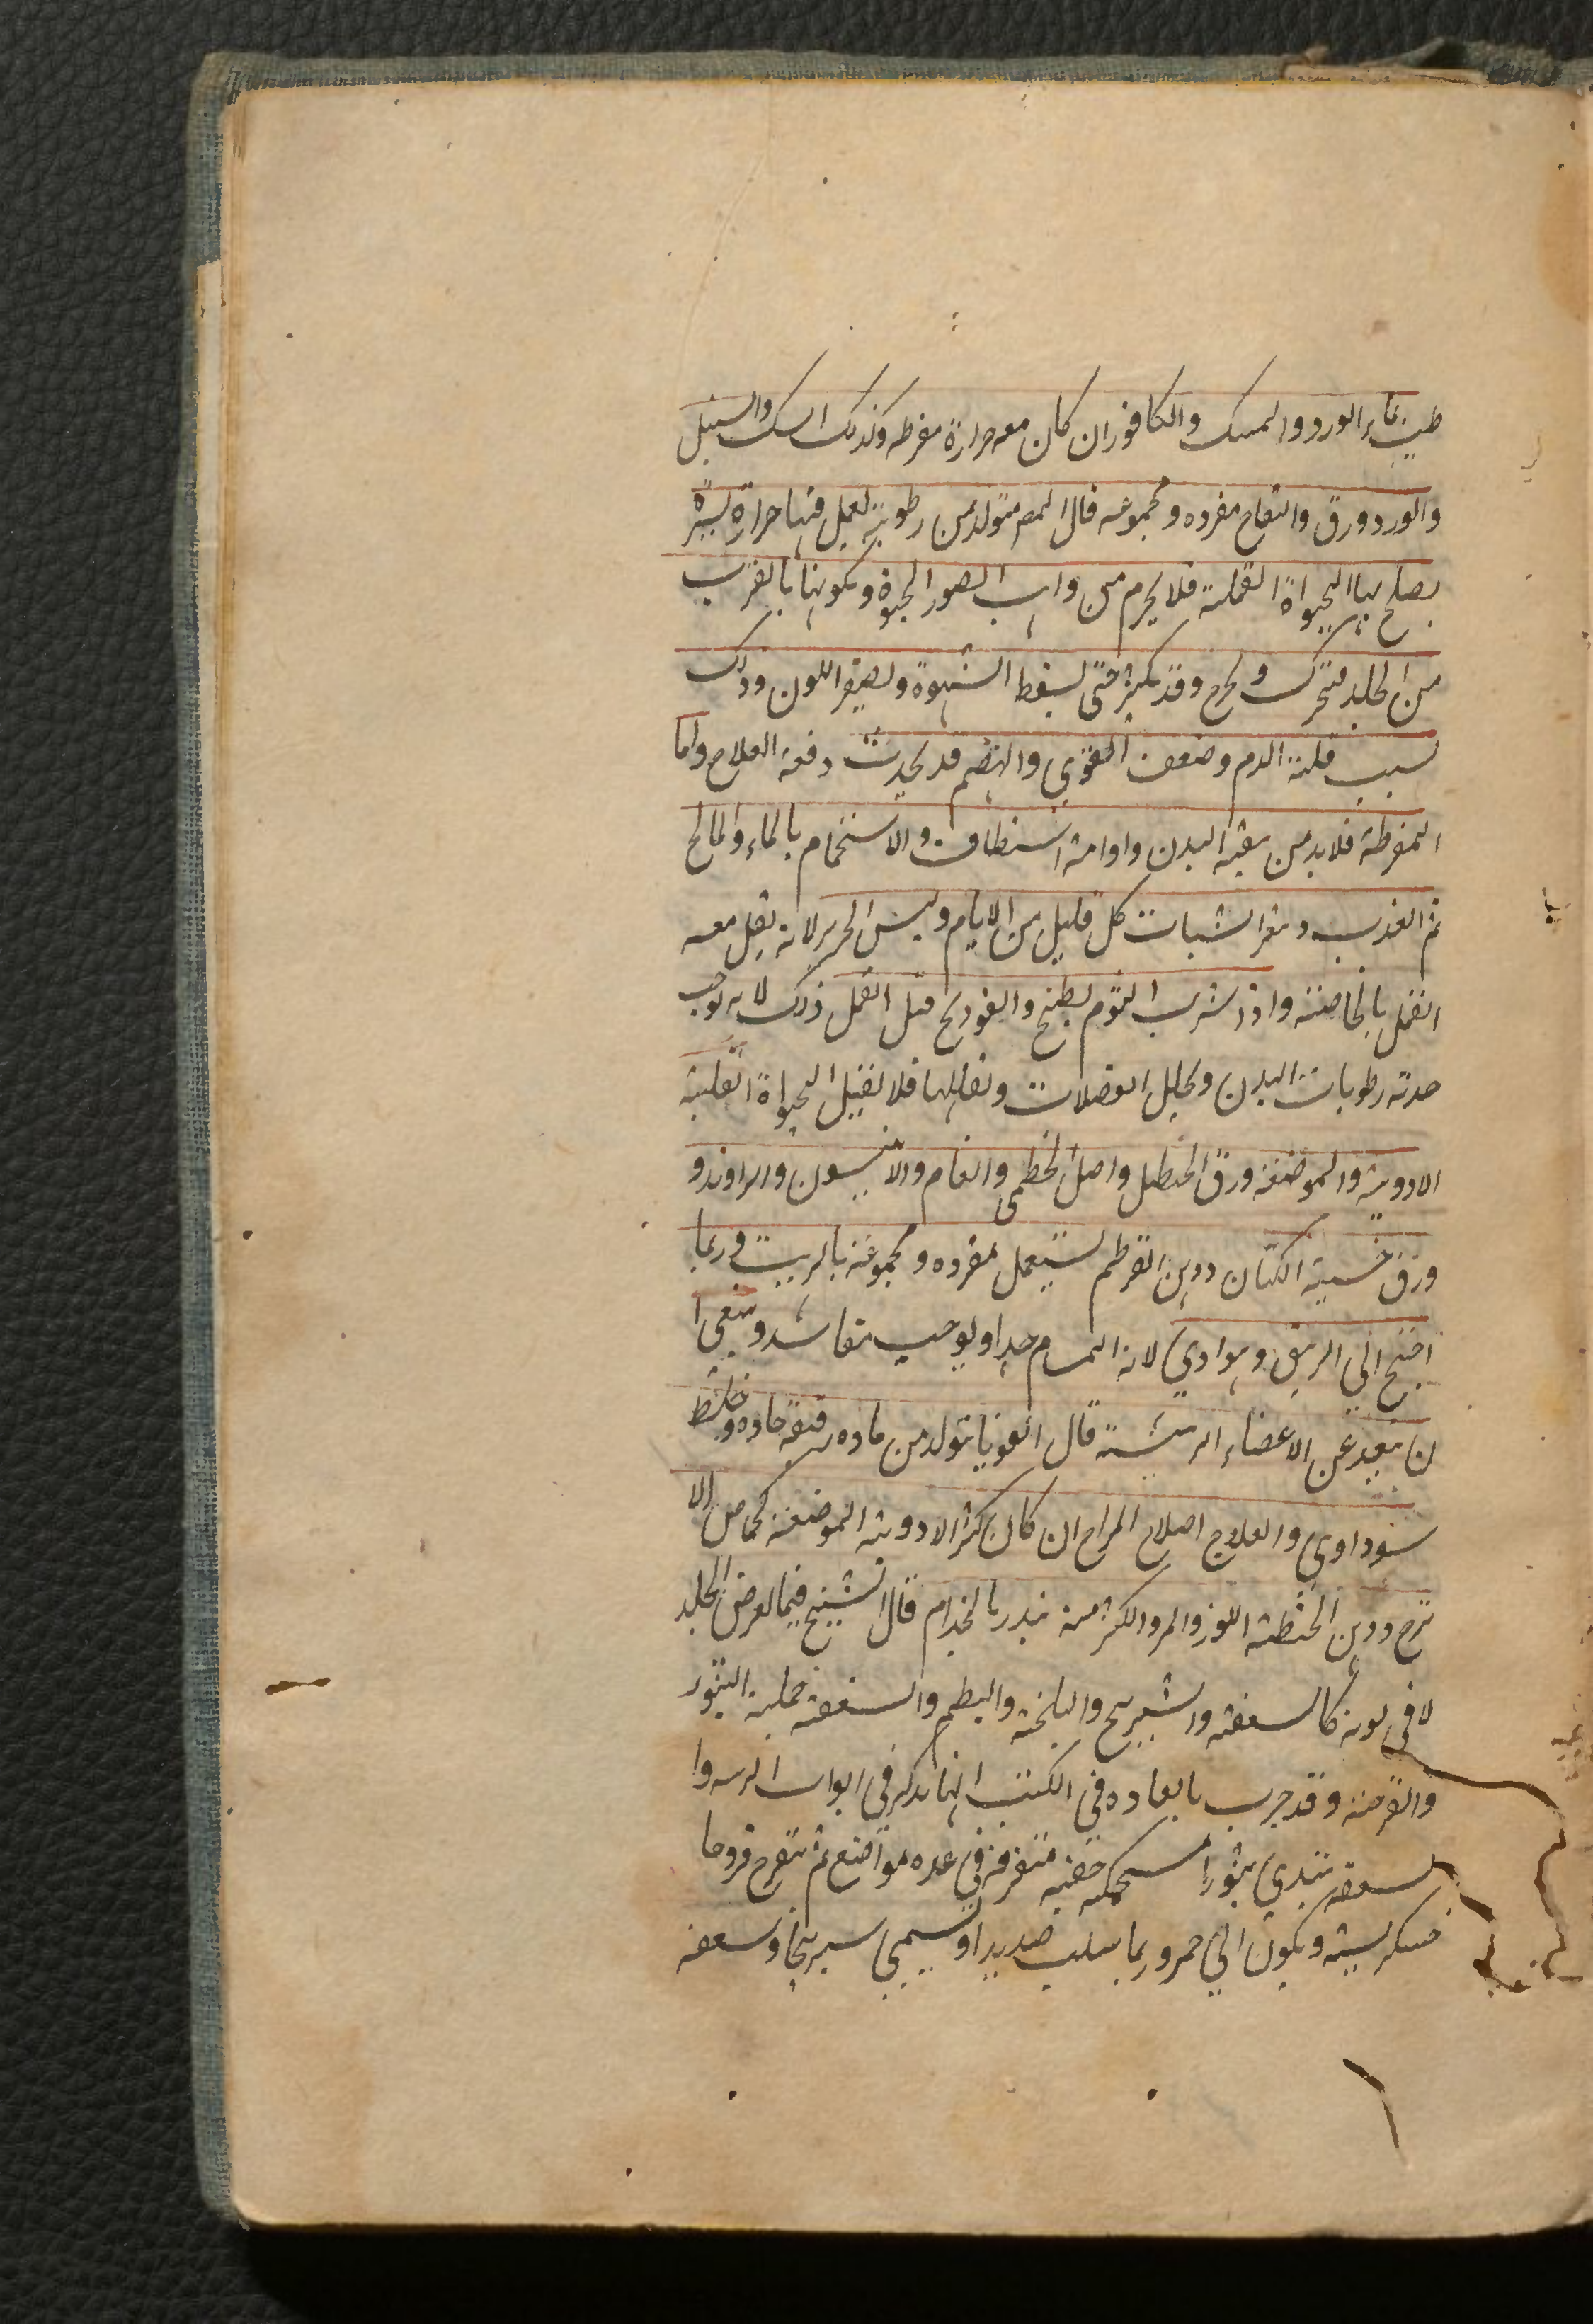 طيب بماء الورد والمسك والكافور ان كان معه حرارة مفرطه وكذلك السك والسنبل
والورد وورق والتفاح مفرده ومجموعه قال القمل متولد من رطوبة لعمل فيها حرارة يسيرة
يصلح بها الحيواة القملية فلا يحرم من واهب الصور الحيوة وتكونها بالقرب
من الجلد فيتحرك ويخرج وقد يكثر حتى يسقط الشهوة ويصفر اللون وذلك
لسبب قلة الدم وضعف القوي والهضم قد يحدث دفعة العلاج واما
المفرطة فلابد من تنقية البدن وادامة استنظاف والاستحمام بالماء والمالح
ثم العذب وتغير الثياب كل قليل من الايام ولبس الحرير لانه يقل معه
القمل بالخاصية واذا شرب الثوم بطبخ والفودنج قتل القمل ذلك لانه لوجب
حدته رطوبات البدن ويحلل الفضلات ويقللها فلا تقبل الحيواة القملية
الادوية والموضعة ورق الحنظل واصل الخطمي والنمام والانيسون والراوند و
ورق خشية الكتان ودهن القرطم يستعمل مفرده ومجموعة بالزيت وربما
احتج الي الزيبق وهوادي لانه المسام جدا ولوجب مقاسد وينبغي ا
ن يبعد عن الاعضاء الرئيسة قال القوبا يتولد من ماده رقيقة حاده وخلط
سوداوي والعلاج اصلاح المزاج ان كان كثر الادوية الموضعة كحماض الا
ترج ودهن الحنطة اللوز والمر والكثر منه ينذر بالجذام قال الشيخ فيما لعرض الجلد
لا في لونه كالسعفة والشيرينج والبلخية والبطم والسعفة جملية البثور
والقرحة وقد جرب بالعاده في الكتب انها تذكر في ابواب الزينة وا
لسعفة تبتدي بثورا مستحكمه خفيه متفرقة في عده مواضع ثم تتقرح قروحا
خشكريشية ويكون الي حمر وربما سلب صديدا وتسمي سيرينجا وسعفه